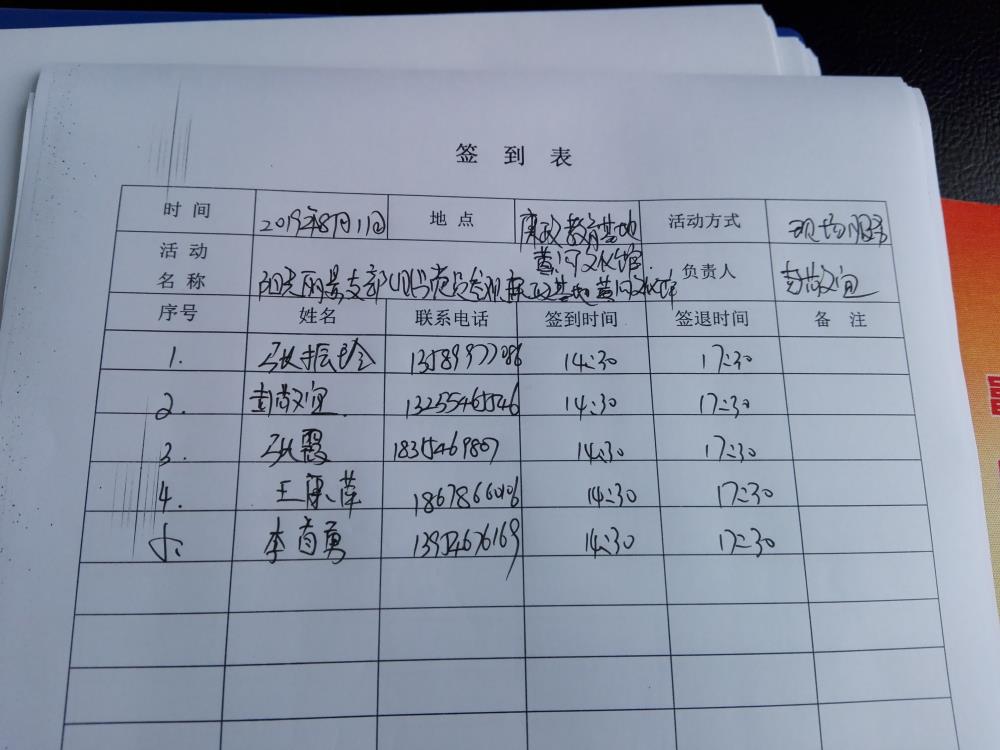 签 到 表
时 间 2019年8月11日 地 点 廉政教育基地黄河文化馆 活动方式 现场服务
活 动 名 称 阳光丽景支部 党员参观廉政基地黄河文化馆 负责人 封尚文宜
序号 姓名 联系电话 签到时间 签退时间 备 注
1. 张振玲 13589977086 14:30 17:30
2. 封尚文宜 13255465546 14:30 17:30
3. 张霞 14:30 17:30
4. 王 萍 18678660106 14:30 17:30
5. 李 勇 13954676169 14:30 17:30